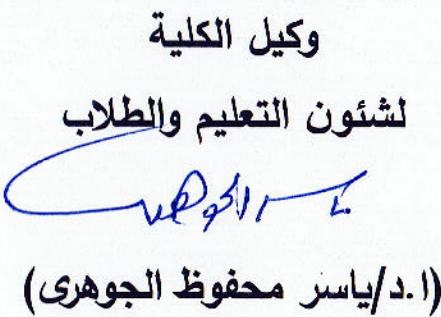 وكيل الكلية
لشئون التعليم والطلاب
ياسر الجوهرى
(ا.د/ياسر محفوظ الجوهرى)